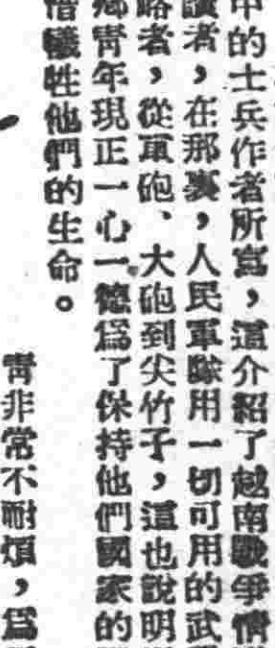 中的士兵作者所寫，這介紹了越南戰爭情
讀者，在那裏，人民軍隊用一切可用的武
略者，從軍砲、大砲到尖竹子，這也說明
鄉靑年現正一心一德爲了保持他們國家的
惜犧牲他們的生命。
靑非常不耐煩，爲